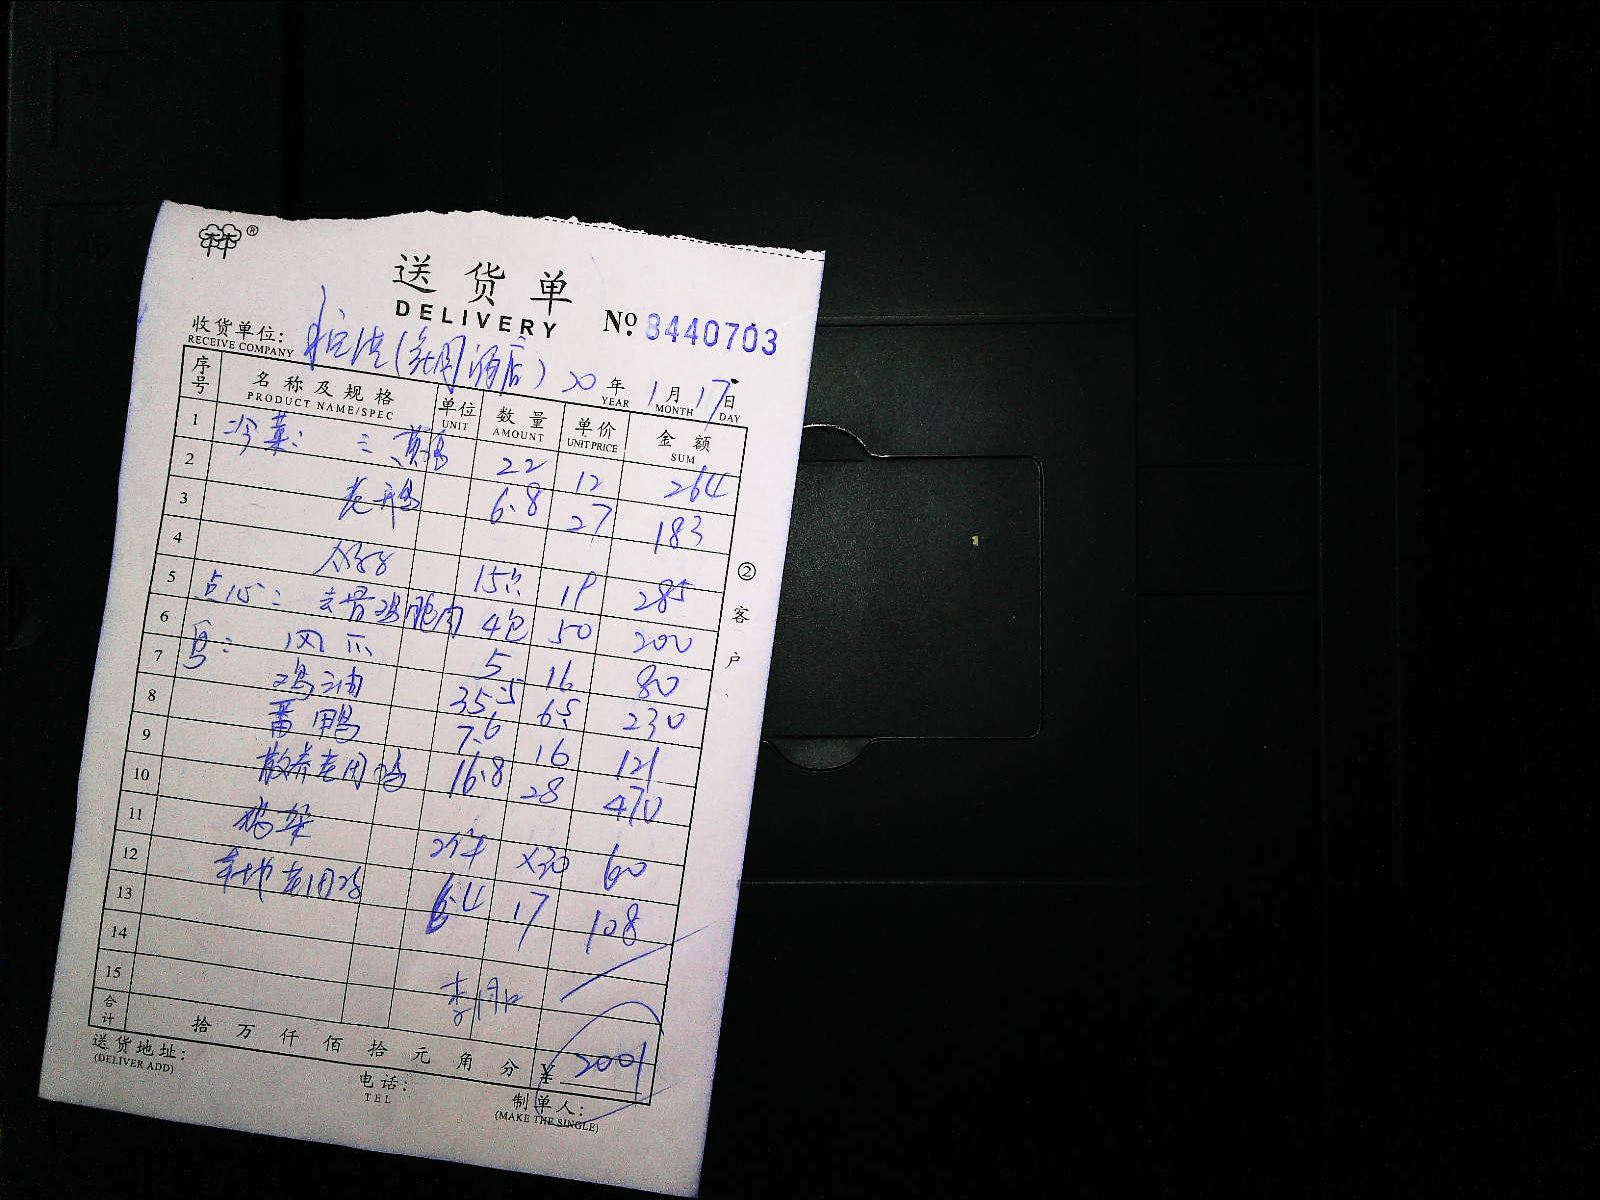 ®
送货单
DELIVERY
No 8440703
收货单位:
RECEIVE COMPANY
20 年 1 月 17 日
YEAR MONTH DAY
序号 名称及规格 单位 数量 单价 金额
PRODUCT NAME/SPEC UNIT AMOUNT UNIT PRICE SUM
1 冷菜: 三黄鸡 22 12 264
2 老 6.8 27 183
3
4 15 19 285
5 点心: 去骨鸡腿肉 4包 50 200
6 凤爪 5 16 80
7 鸡油 35.5 6.5 230
8 番鸭 7.6 16 121
9 散养老用鸡 16.8 28 470
10
11 鸡架 2件 ×30 60
12 本地老用鸡 6.4 17 108
13
14
15
合计 拾 万 仟 佰 拾 元 角 分 ¥ 2001
② 客户
送货地址:
(DELIVER ADD)
电话:
TEL
制单人:
(MAKE THE SINGLE)